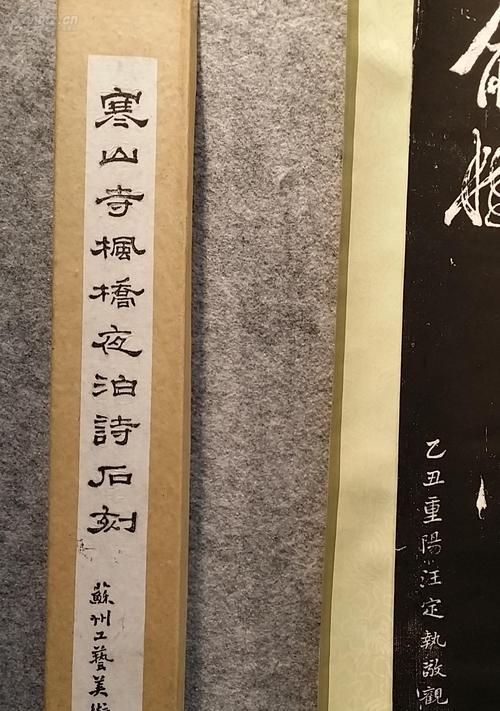 寒山寺楓橋夜泊詩石刻
蘇州工藝美術
乙丑重陽汪定執敬觀